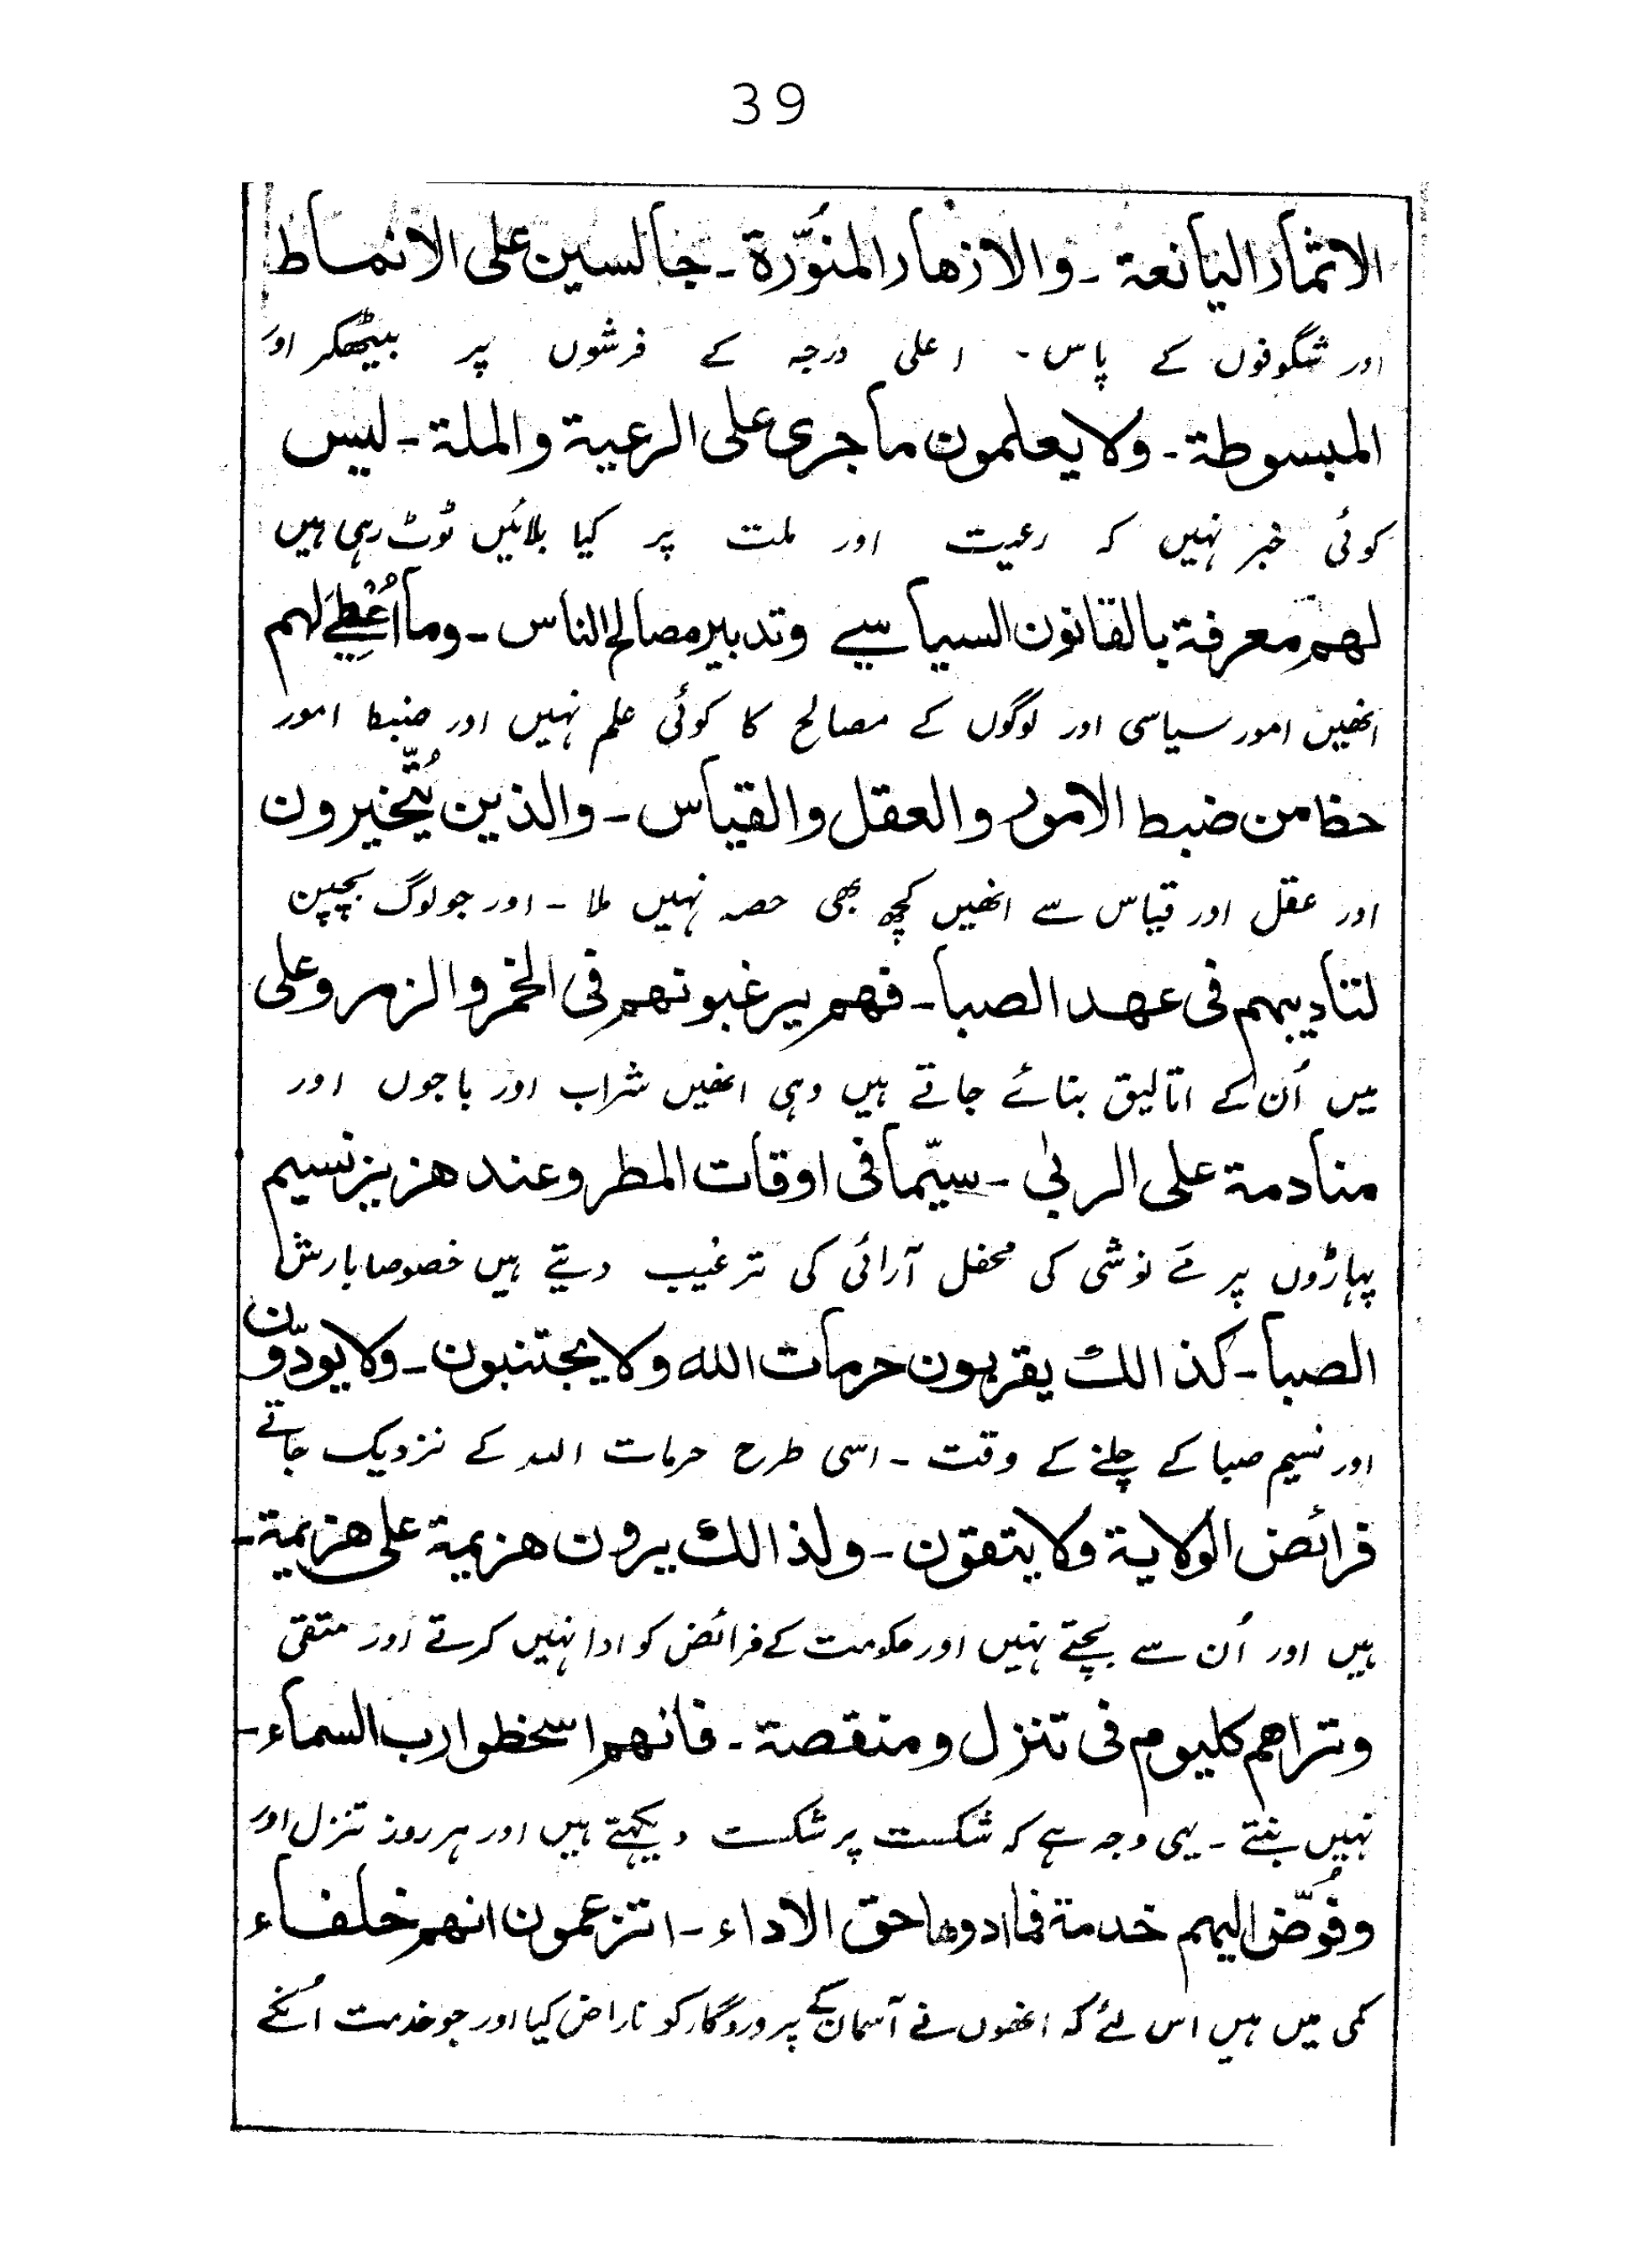 39
الاثمار اليانعة ـ والازهار المنوّرة ـ جالسين على الانماط
اور شگوفوں کے پاس ـ اعلی درجہ کے فرشوں پر بیٹھکر اور
المبسوطة ـ ولا يعلمون ما جرى على الرعية والملة ـ ليس
کوئی خبر نہیں کہ رعیت اور ملت پر کیا بلائیں ٹوٹ رہی ہیں
لهم معرفة بالقانون السياسے وتدبير مصالح الناس ـ وما اُعْطِےَ لهم
انھیں امور سیاسی اور لوگوں کے مصالح کا کوئی علم نہیں اور ضبط امور
حظ من ضبط الامور والعقل والقياس ـ والذين يُتّخيرون
اور عقل اور قیاس سے انھیں کچھ بھی حصہ نہیں ملا ـ اور جو لوگ بچپن
لتاديبهم فى عهد الصبا ـ فهم يرغبونهم فى الخمر والزمر وعلى
میں اُن کے اتالیق بنائے جاتے ہیں وہی انھیں شراب اور باجوں اور
منادمة على الربىٰ ـ سيّما فى اوقات المطر وعند هزيز نسيم
پہاڑوں پر مے نوشی کی محفل آرائی کی ترغیب دیتے ہیں خصوصا بارش
الصبا ـ كذالك يقربون حرمات الله ولا يجتنبون ـ ولا يودّون
اور نسیم صبا کے چلنے کے وقت ـ اسی طرح حرمات اللہ کے نزدیک جاتے
فرائض الولاية ولا يتقون ـ ولذالك يرون هزيمة على هزيمة ـ
ہیں اور اُن سے بچتے نہیں اور حکومت کے فرائض کو ادا نہیں کرتے اور متقی
وتراهم كليوم فى تنزل ومنقصة ـ فانهم اسخطوا رب السماء ـ
نہیں بنتے ـ یہی وجہ ہے کہ شکست پر شکست دیکہتے ہیں اور ہر روز تنزل اور
وفُوّض اليهم خدمة فما ادوها حق الاداء ـ اتزعمون انهم خلفاء
کمی میں ہیں اس لئے کہ انھوں نے آسمان کے پروردگار کو ناراض کیا اور جو خدمت اُنکے